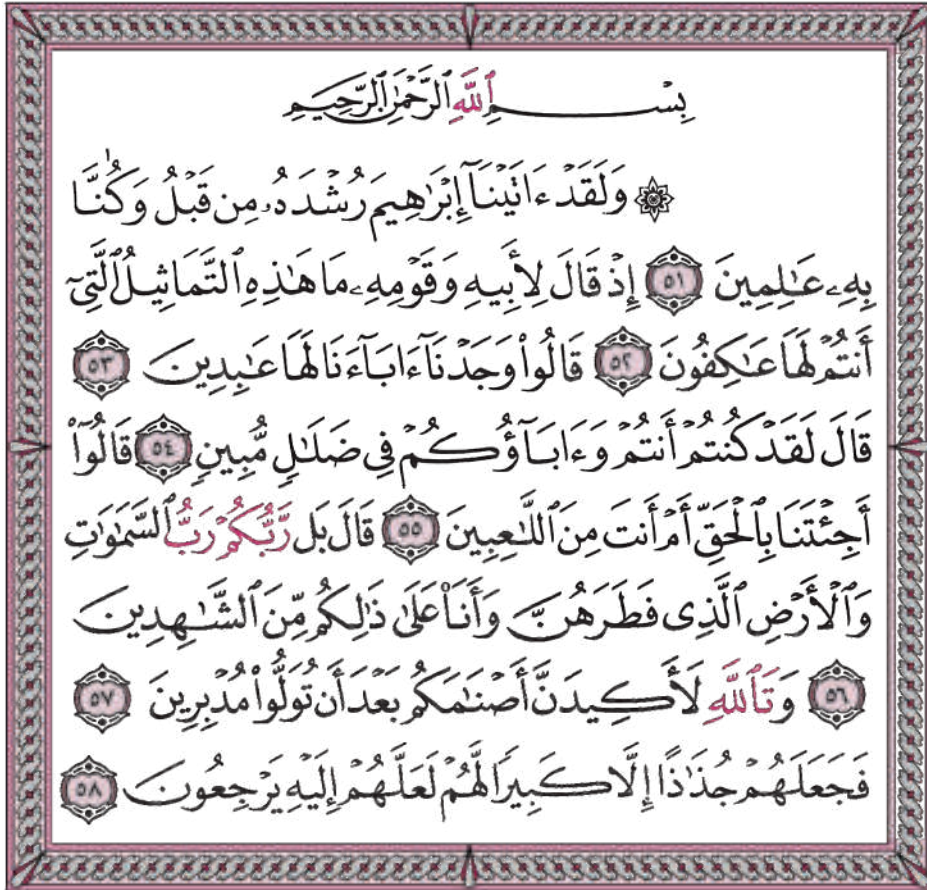 بِسْمِ ٱللَّهِ ٱلرَّحْمَٰنِ ٱلرَّحِيمِ
۞ وَلَقَدْ ءَاتَيْنَآ إِبْرَٰهِيمَ رُشْدَهُۥ مِن قَبْلُ وَكُنَّا
بِهِۦ عَٰلِمِينَ ٥١ إِذْ قَالَ لِأَبِيهِ وَقَوْمِهِۦ مَا هَٰذِهِ ٱلتَّمَاثِيلُ ٱلَّتِىٓ
أَنتُمْ لَهَا عَٰكِفُونَ ٥٢ قَالُوا۟ وَجَدْنَآ ءَابَآءَنَا لَهَا عَٰبِدِينَ ٥٣
قَالَ لَقَدْ كُنتُمْ أَنتُمْ وَءَابَآؤُكُمْ فِى ضَلَٰلٍ مُّبِينٍ ٥٤ قَالُوٓا۟
أَجِئْتَنَا بِٱلْحَقِّ أَمْ أَنتَ مِنَ ٱللَّٰعِبِينَ ٥٥ قَالَ بَل رَّبُّكُمْ رَبُّ ٱلسَّمَٰوَٰتِ
وَٱلْأَرْضِ ٱلَّذِى فَطَرَهُنَّ وَأَنَا۠ عَلَىٰ ذَٰلِكُم مِّنَ ٱلشَّٰهِدِينَ
٥٦ وَتَٱللَّهِ لَأَكِيدَنَّ أَصْنَٰمَكُم بَعْدَ أَن تُوَلُّوا۟ مُدْبِرِينَ ٥٧
فَجَعَلَهُمْ جُذَٰذًا إِلَّا كَبِيرًا لَّهُمْ لَعَلَّهُمْ إِلَيْهِ يَرْجِعُونَ ٥٨